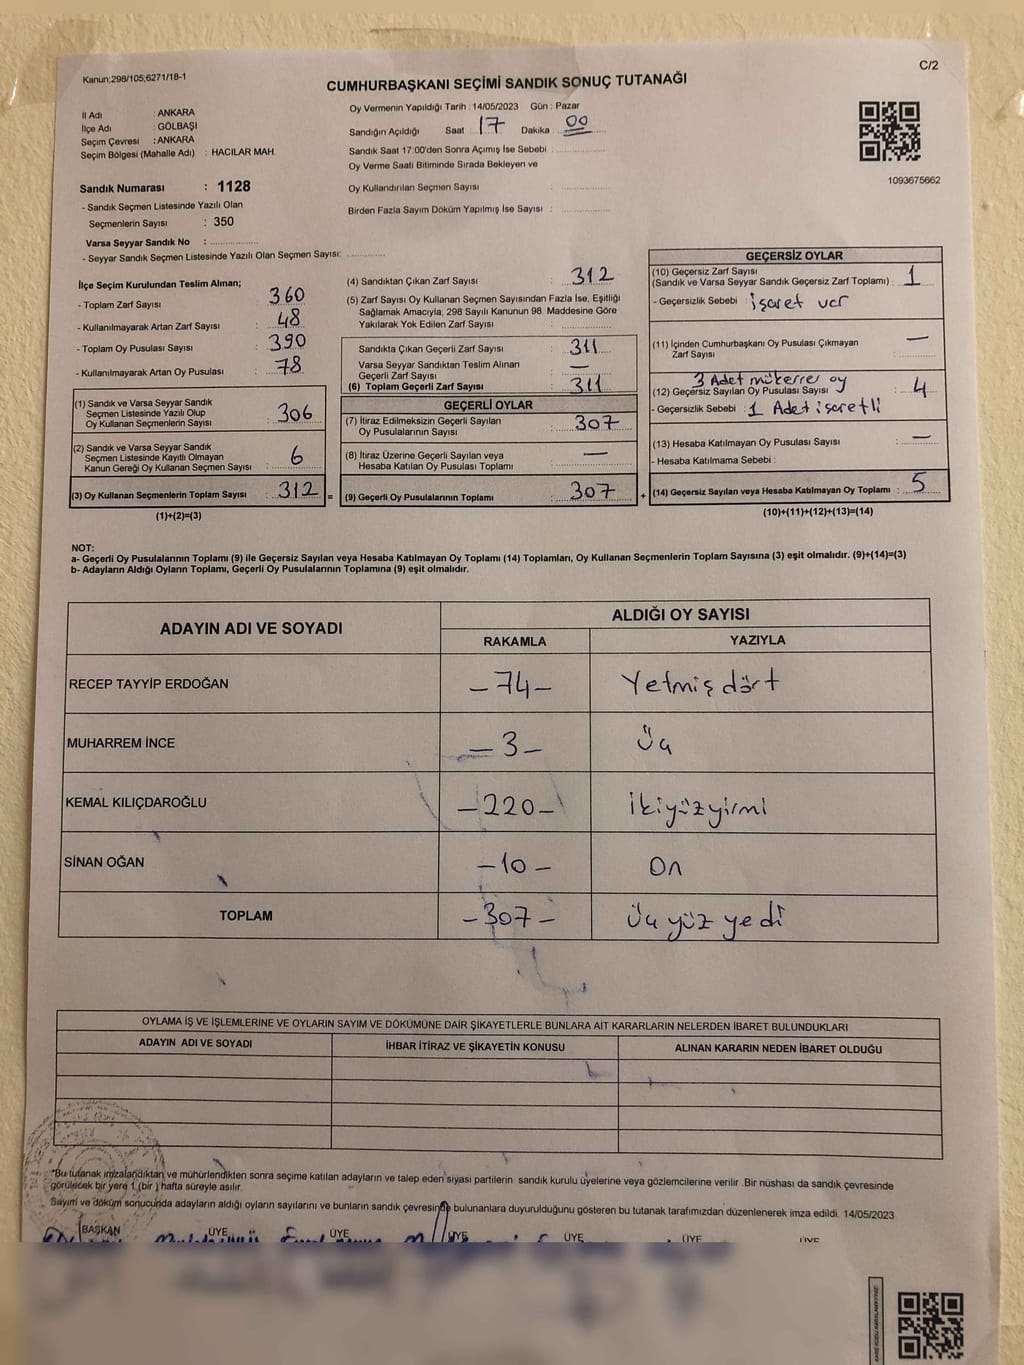 Kanun;298/105;6271/18-1
C/2
CUMHURBAŞKANI SEÇİMİ SANDIK SONUÇ TUTANAĞI
İl Adı : ANKARA
İlçe Adı : GÖLBAŞI
Seçim Çevresi : ANKARA
Seçim Bölgesi (Mahalle Adı) : HACILAR MAH.
Sandık Numarası : 1128
- Sandık Seçmen Listesinde Yazılı Olan
Seçmenlerin Sayısı : 350
Varsa Seyyar Sandık No :
- Seyyar Sandık Seçmen Listesinde Yazılı Olan Seçmen Sayısı:
Oy Vermenin Yapıldığı Tarih : 14/05/2023 Gün : Pazar
Sandığın Açıldığı Saat 17 Dakika 00
Sandık Saat 17:00'den Sonra Açımış İse Sebebi :
Oy Verme Saati Bitiminde Sırada Bekleyen ve
Oy Kullandırılan Seçmen Sayısı :
Birden Fazla Sayım Döküm Yapılmış İse Sayısı :
1093675662
İlçe Seçim Kurulundan Teslim Alınan;
- Toplam Zarf Sayısı : 360
- Kullanılmayarak Artan Zarf Sayısı : 48
- Toplam Oy Pusulası Sayısı : 390
- Kullanılmayarak Artan Oy Pusulası : 78
(1) Sandık ve Varsa Seyyar Sandık
Seçmen Listesinde Yazılı Olup
Oy Kullanan Seçmenlerin Sayısı : 306
(2) Sandık ve Varsa Seyyar Sandık
Seçmen Listesinde Kayıtlı Olmayan
Kanun Gereği Oy Kullanan Seçmen Sayısı : 6
(3) Oy Kullanan Seçmenlerin Toplam Sayısı : 312 =
(1)+(2)=(3)
(4) Sandıktan Çıkan Zarf Sayısı : 312
(5) Zarf Sayısı Oy Kullanan Seçmen Sayısından Fazla İse, Eşitliği
Sağlamak Amacıyla; 298 Sayılı Kanunun 98. Maddesine Göre
Yakılarak Yok Edilen Zarf Sayısı :
Sandıkta Çıkan Geçerli Zarf Sayısı : 311
Varsa Seyyar Sandıktan Teslim Alınan
Geçerli Zarf Sayısı : —
(6) Toplam Geçerli Zarf Sayısı : 311
GEÇERLİ OYLAR
(7) İtiraz Edilmeksizin Geçerli Sayılan
Oy Pusulalarının Sayısı : 307
(8) İtiraz Üzerine Geçerli Sayılan veya
Hesaba Katılan Oy Pusulası Toplamı : —
(9) Geçerli Oy Pusulalarının Toplamı : 307 +
GEÇERSİZ OYLAR
(10) Geçersiz Zarf Sayısı
(Sandık ve Varsa Seyyar Sandık Geçersiz Zarf Toplamı) : 1
- Geçersizlik Sebebi : işaret var
(11) İçinden Cumhurbaşkanı Oy Pusulası Çıkmayan
Zarf Sayısı : —
3 Adet mükerrer oy
(12) Geçersiz Sayılan Oy Pusulası Sayısı : 4
- Geçersizlik Sebebi : 1 Adet işaretli
(13) Hesaba Katılmayan Oy Pusulası Sayısı : —
- Hesaba Katılmama Sebebi :
(14) Geçersiz Sayılan veya Hesaba Katılmayan Oy Toplamı : 5
(10)+(11)+(12)+(13)=(14)
NOT:
a- Geçerli Oy Pusulalarının Toplamı (9) ile Geçersiz Sayılan veya Hesaba Katılmayan Oy Toplamı (14) Toplamları, Oy Kullanan Seçmenlerin Toplam Sayısına (3) eşit olmalıdır. (9)+(14)=(3)
b- Adayların Aldığı Oyların Toplamı, Geçerli Oy Pusulalarının Toplamına (9) eşit olmalıdır.
ADAYIN ADI VE SOYADI
ALDIĞI OY SAYISI
RAKAMLA YAZIYLA
RECEP TAYYİP ERDOĞAN -74- Yetmiş dört
MUHARREM İNCE -3- Üç
KEMAL KILIÇDAROĞLU -220- ikiyüzyirmi
SİNAN OĞAN -10- On
TOPLAM -307- Üç yüz yedi
OYLAMA İŞ VE İŞLEMLERİNE VE OYLARIN SAYIM VE DÖKÜMÜNE DAİR ŞİKAYETLERLE BUNLARA AİT KARARLARIN NELERDEN İBARET BULUNDUKLARI
ADAYIN ADI VE SOYADI İHBAR İTİRAZ VE ŞİKAYETİN KONUSU ALINAN KARARIN NEDEN İBARET OLDUĞU
*Bu tutanak imzalandıktan ve mühürlendikten sonra seçime katılan adayların ve talep eden siyasi partilerin sandık kurulu üyelerine veya gözlemcilerine verilir .Bir nüshası da sandık çevresinde
görülecek bir yere 1 (bir ) hafta süreyle asılır.
Sayım ve döküm sonucunda adayların aldığı oyların sayılarını ve bunların sandık çevresinde bulunanlara duyurulduğunu gösteren bu tutanak tarafımızdan düzenlenerek imza edildi. 14/05/2023
BAŞKAN ÜYE ÜYE ÜYE ÜYE ÜYE ÜYE